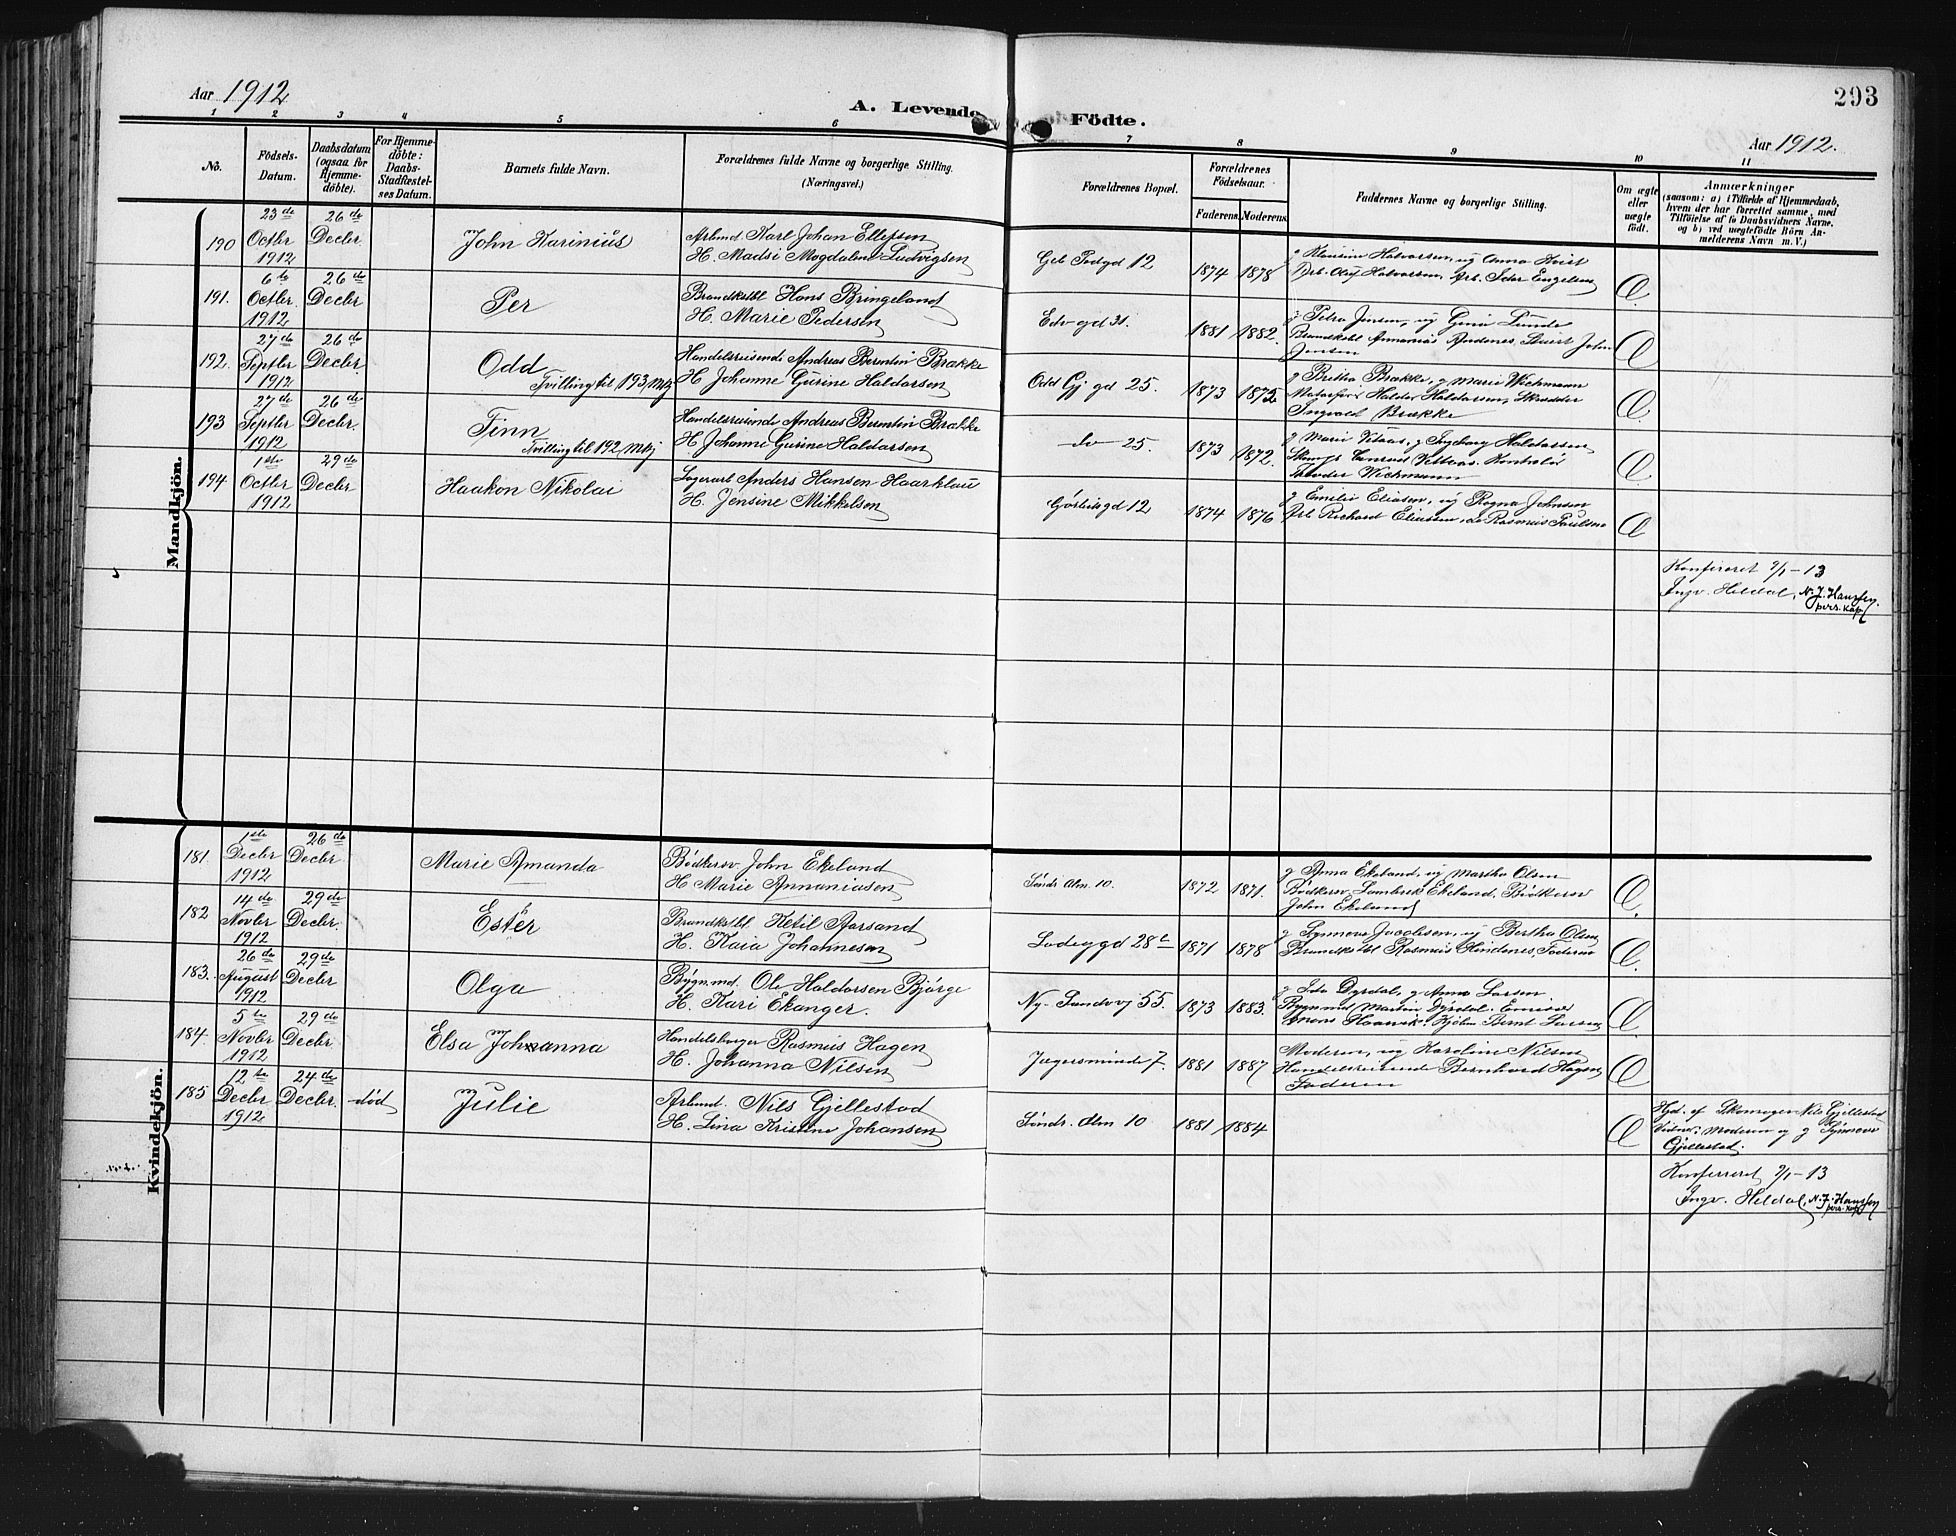 Aar 1912
A. Levende Födte.
293
Aar 1912.
1 2 3 4 5 6 7 8 9 10 11
No.
Födsels-Datum.
Daabsdatum (ogsaa for Hjemmedöbte).
For Hjemmedöbte: Daabs-Stadfæstelses Datum.
Barnets fulde Navn.
Forældrenes fulde Navne og borgerlige Stilling. (Næringsvei.)
Forældrenes Bopæl.
Forældrenes Födselsaar.
Faderens. Moderens.
Faddernes Navne og borgerlige Stilling.
Om ægte eller uægte födt.
Anmærkninger
(saasom: a) i Tilfælde af Hjemmedaab,
hvem der har forrettet samme, med
Tilföielse af to Daabsvidners Navne.
og b) ved uægtefödte Börn An-
melderens Navn m. V.)
Mandkjön.
190 23de Octbr 1912 26de Decbr. John Karinius
Arbmd Karl Johan Ellefsen
H. Madsi Magdalene Ludvigsen
12 1874 1878
Arb. Olaf Halvorsen, Arb. Peder Engelsen
191. 6te Octbr. 1912 26de Decbr Per
Brandkstbl Hans Bringeland
H. Marie Pedersen
Edv gd 31. 1881 1882.
g Petra Jensen, ug Gina Lunde
192. 27de Septbr 1912 26de Decbr. Odd
Tvilling til 193, Mkj
Handelsreisende Andreas Berentin Brække
H Johanne Gurine Haldorsen
Odd Gj gd 25. 1873 1872
g Bertha Brække, g Marie Wichmann
Halder Haldorsen, Skrædder
Ingvald Brække
193 27de Septbr 1912 26de Decbr. Finn
Tvilling til 192 Mkj
Handelsreisende Andreas Berentin Brække
H. Johanne Gurine Haldorsen
do 25. 1873 1872.
Ingeborg Haldorsen
Wichmann
194 1ste Octbr 1912 29de Decbr Haakon Nikolai
Lagerarb Anders Hansen Haarklau
H. Jensine Mikkelsen
12 1874 1876
g Emilie Eliasen, ug Ragna Johnsen
Arb Richard Eliassen, do Rasmus Paulsen
Konfereret 2/1–13
Ingv. Heldal, N. J. Hansen
pers. kap
Kvindekjön.
181. 1ste Decbr 1912 26de Decbr Marie Amanda
Bödkersv John Ekeland
H Marie Annaniasen
Söndr Alm 10. 1872 1871.
g Anna Ekeland, ug Martha Olsen
Bödkersv Lambrek Ekeland, Bödkersv
John Ekeland
182 14de Novbr 1912 29de Decbr. Ester
Brandkstbl Ketil Aarsand
H. Kaia Johannesen
28 1871 1878
g Synneve Jacobsen, ug Bertha Olsen
Brandkstbl Rasmus Hindenes, Faderen
183. 26de August 1912 29de Decbr Olga
Bygn.md. Ole Haldorsen Bjørge
H. Kari Ekanger.
Ny- Sandvvj 55. 1873 1883.
g Ida Dyrdal, g Anna Larsen
Bygnmd Martin Dyrdal
Bernt Larsen
184. 5te Novbr 1912 29de Decbr Elsa Johanna
Handelsborger Rasmus Hagen
H. Johanna Nilsen
Jægersminde 7. 1881 1887
Moderen, ug Karoline Nilsen
Handelsreisende Bernhard Hagen
Faderen
185 12te Decbr 1912 24de Decbr. död Julie
Arbmd. Nils Gjellestad
H. Lina Kristine Johansen
Söndr. Alm 10 1881 1884
Hjd. af Nils Gjellestad
Moderen og g Synneve
Gjellestad.
Konfereret 2/1–13
Ingv. Heldal, N. J. Hansen
pers. kap